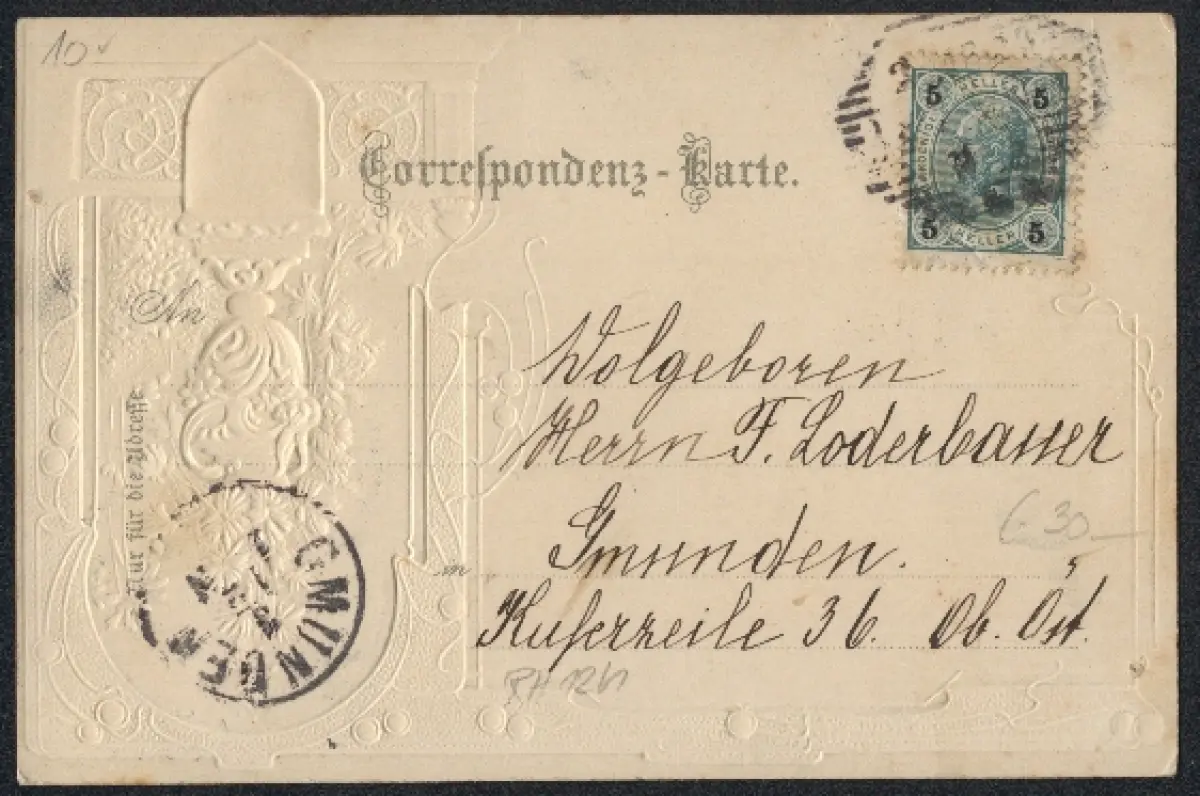 10
Correspondenz-Karte.
5 HELLER 5
5 HELLER 5
An
Wolgeboren
Herrn F. Loderbauer
Gmunden.
Kuferzeile 36. Ob. Öst.
in
Nur für die Adresse
GMUNDEN
6.30